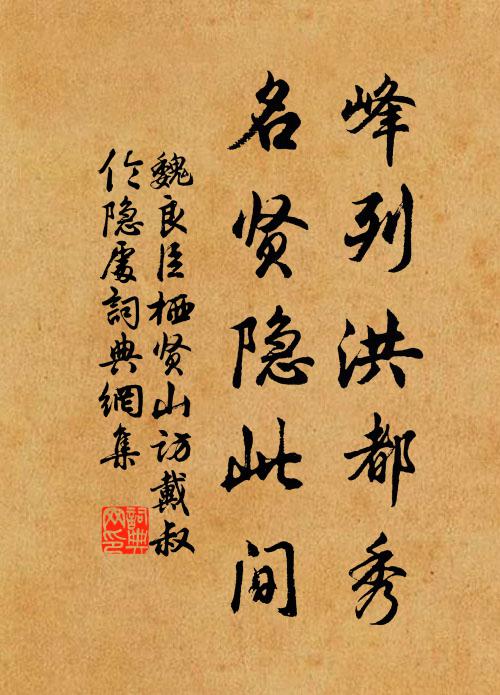 峰列洪都秀
名贤隐此间
魏良臣栖贤山访戴叔
伦隐处词典網集
詞典網印